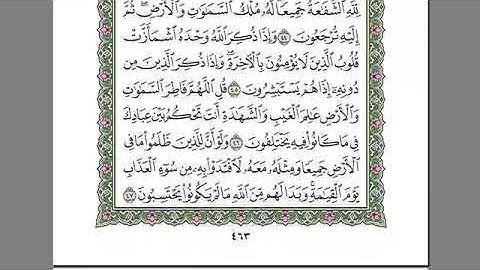 لِلَّهِ ٱلشَّفَٰعَةُ جَمِيعًا لَّهُۥ مُلْكُ ٱلسَّمَٰوَٰتِ وَٱلْأَرْضِ ثُمَّ
إِلَيْهِ تُرْجَعُونَ ٤٤ وَإِذَا ذُكِرَ ٱللَّهُ وَحْدَهُ ٱشْمَأَزَّتْ
قُلُوبُ ٱلَّذِينَ لَا يُؤْمِنُونَ بِٱلْأَخِرَةِ وَإِذَا ذُكِرَ ٱلَّذِينَ مِن
دُونِهِۦٓ إِذَا هُمْ يَسْتَبْشِرُونَ ٤٥ قُلِ ٱللَّهُمَّ فَاطِرَ ٱلسَّمَٰوَٰتِ
وَٱلْأَرْضِ عَٰلِمَ ٱلْغَيْبِ وَٱلشَّهَٰدَةِ أَنتَ تَحْكُمُ بَيْنَ عِبَادِكَ
فِي مَا كَانُوا۟ فِيهِ يَخْتَلِفُونَ ٤٦ وَلَوْ أَنَّ لِلَّذِينَ ظَلَمُوا۟ مَا فِي
ٱلْأَرْضِ جَمِيعًا وَمِثْلَهُۥ مَعَهُۥ لَٱفْتَدَوْا۟ بِهِۦ مِن سُوٓءِ ٱلْعَذَابِ
يَوْمَ ٱلْقِيَٰمَةِ وَبَدَا لَهُم مِّنَ ٱللَّهِ مَا لَمْ يَكُونُوا۟ يَحْتَسِبُونَ ٤٧
٤٦٣